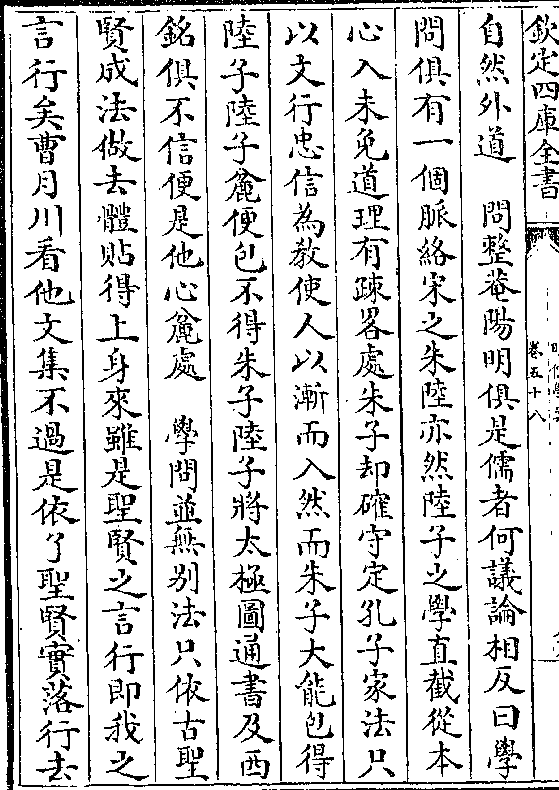 欽定四庫全書
卷五十八
自然外道　問整菴陽明俱是儒者何議論相反曰學
問俱有一個脈絡宋之朱陸亦然陸子之學直截從本
心入未免道理有疎畧處朱子却確守定孔子家法只
以文行忠信為教使人以漸而入然而朱子大能包得
陸子陸子麄便包不得朱子陸子將太極圖通書及西
銘俱不信便是他心麄處　學問並無别法只依古聖
賢成法做去體貼得上身來雖是聖賢之言行即我之
言行矣曹月川看他文集不過是依了聖賢實落行去